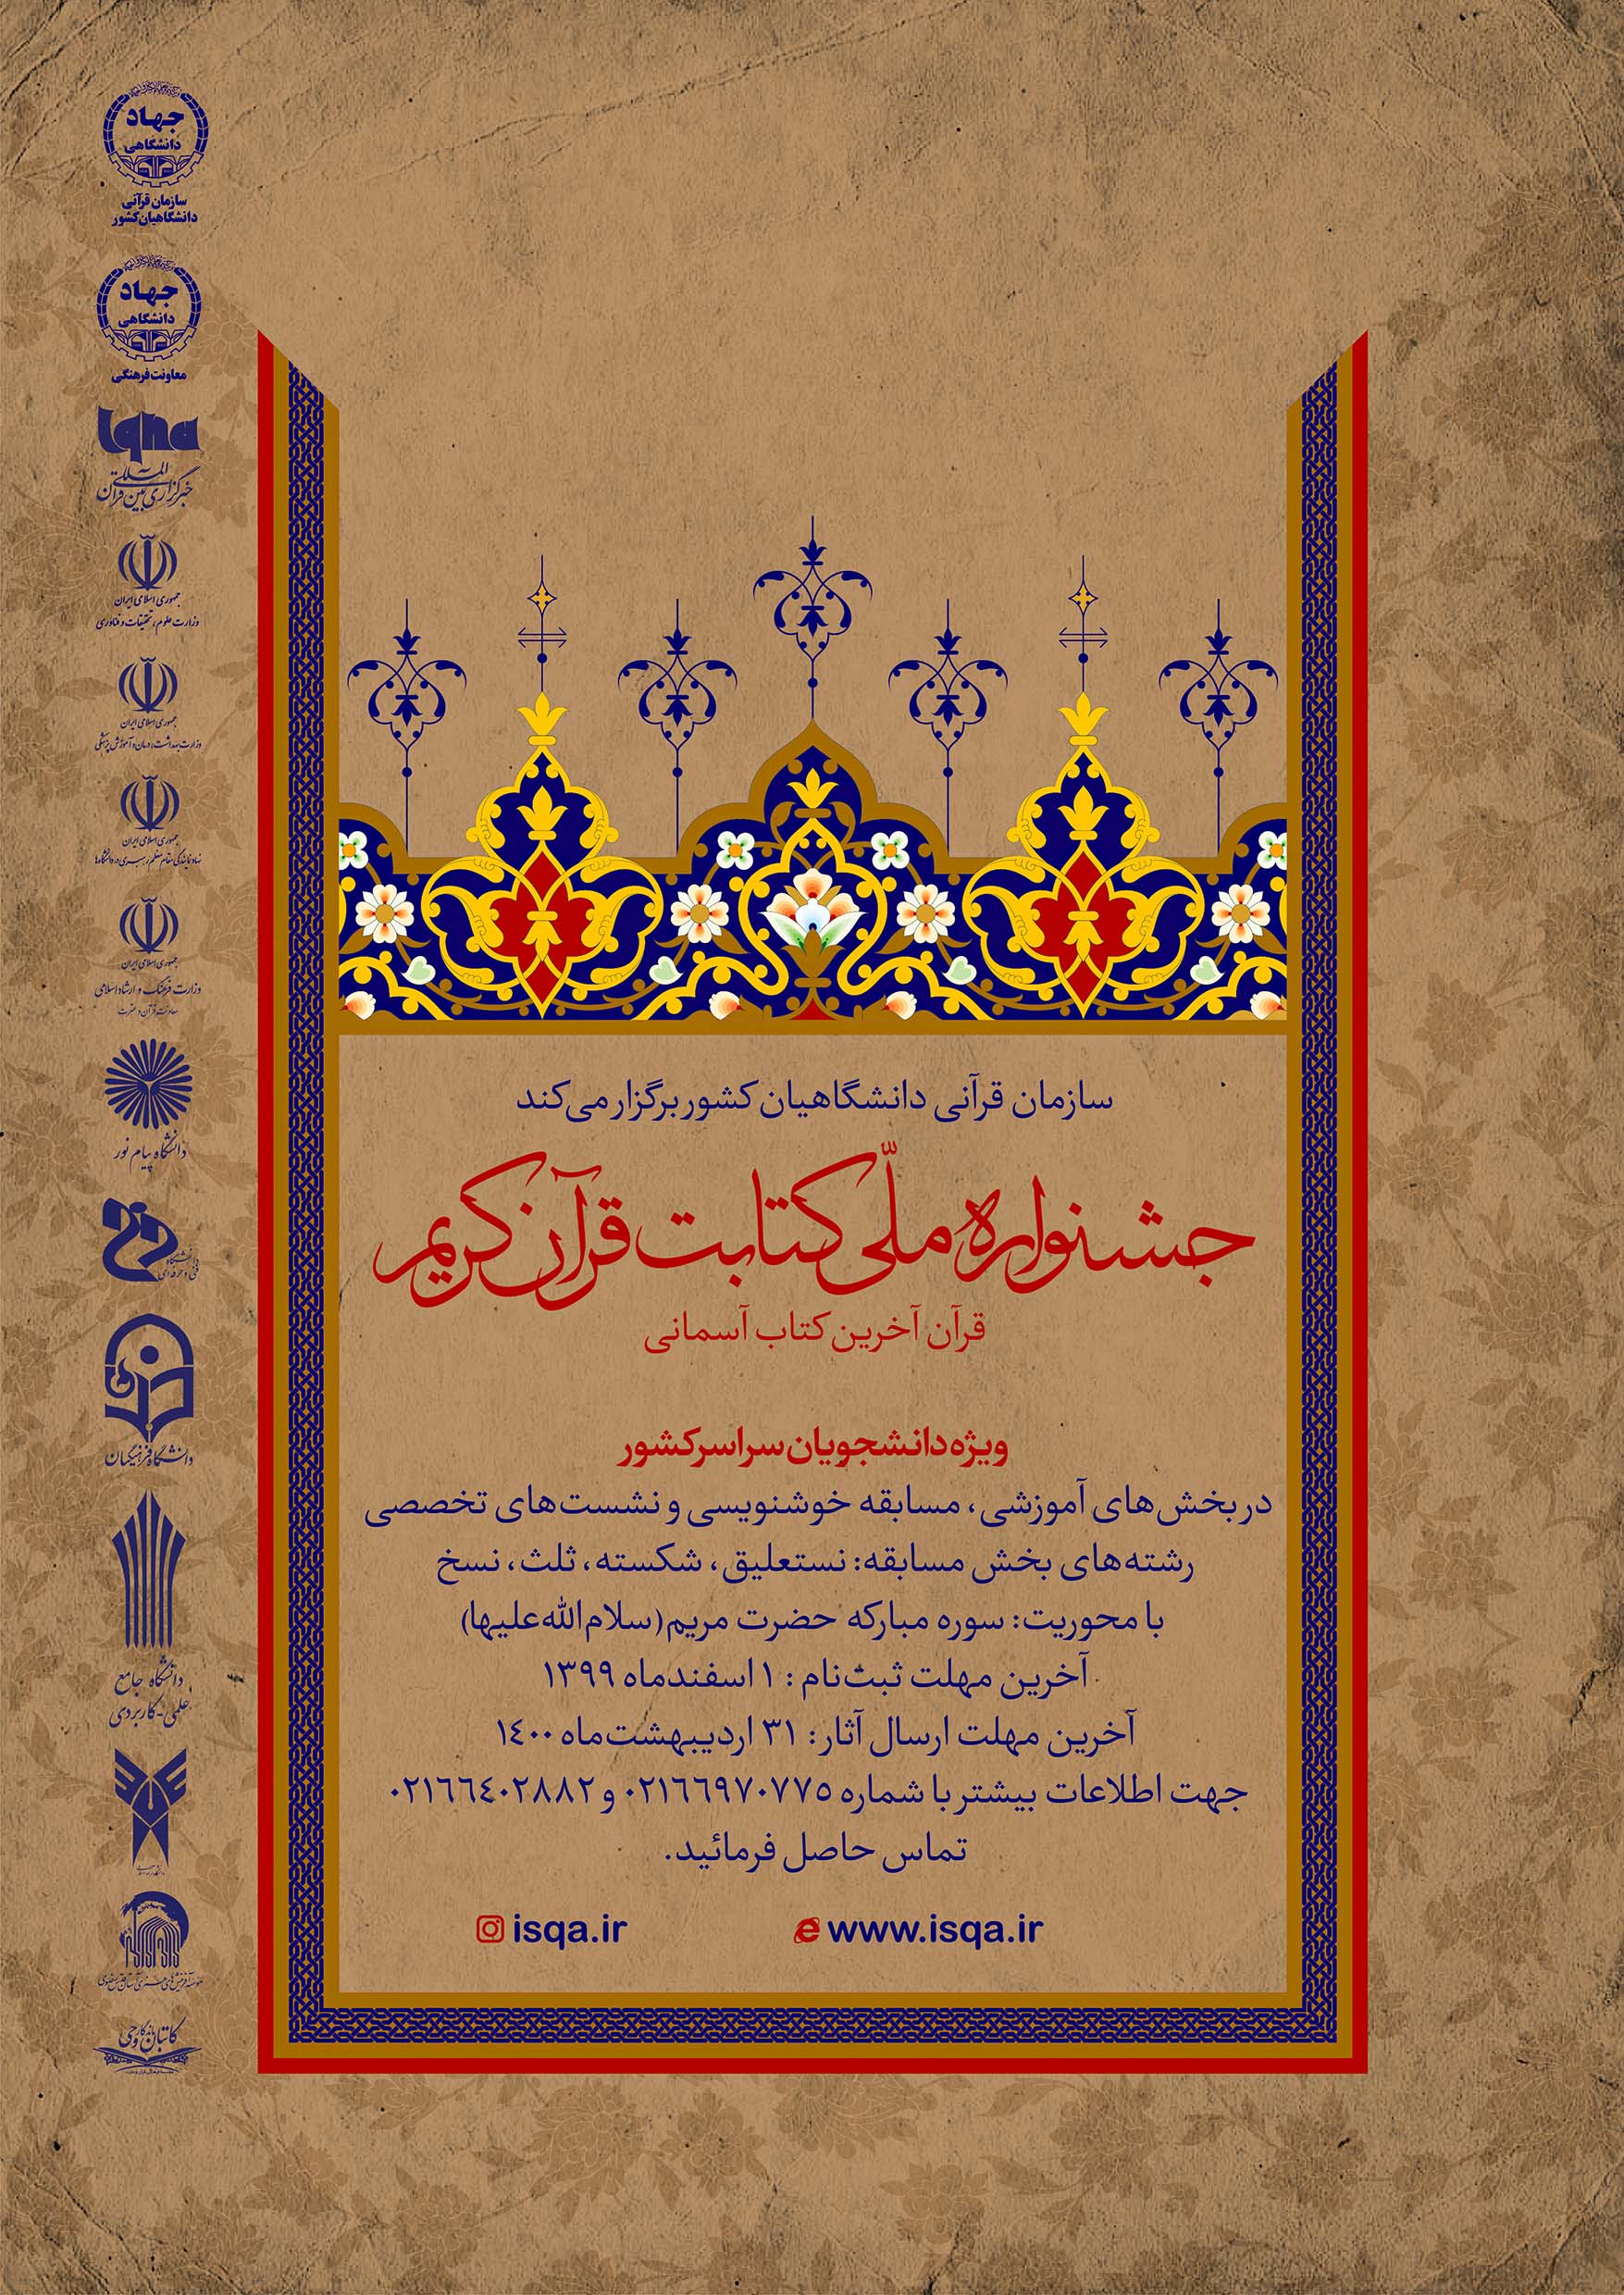 جهاد
دانشگاهی
سازمان قرآنی
دانشگاهیان کشور
جهاد
دانشگاهی
معاونت فرهنگی
iqna
خبرگزاری بین‌المللی قرآن
جمهوری اسلامی ایران
وزارت علوم، تحقیقات و فناوری
جمهوری اسلامی ایران
وزارت بهداشت، درمان و آموزش پزشکی
جمهوری اسلامی ایران
نهاد نمایندگی مقام معظم رهبری در دانشگاه‌ها
جمهوری اسلامی ایران
وزارت فرهنگ و ارشاد اسلامی
معاونت قرآن و عترت
دانشگاه پیام نور
دانشگاه
فنی و حرفه‌ای
دانشگاه فرهنگیان
دانشگاه جامع
علمی-کاربردی
موسسه آفرینش‌های هنری آستان قدس رضوی
کاتبان وحی
سازمان قرآنی دانشگاهیان کشور برگزار می‌کند
جشنواره ملّی کتابت قرآن کریم
قرآن آخرین کتاب آسمانی
ویژه دانشجویان سراسر کشور
در بخش‌های آموزشی، مسابقه خوشنویسی و نشست‌های تخصصی
رشته‌های بخش مسابقه: نستعلیق، شکسته، ثلث، نسخ
با محوریت: سوره مبارکه حضرت مریم (سلام‌الله‌علیها)
آخرین مهلت ثبت‌نام : ۱ اسفندماه ۱۳۹۹
آخرین مهلت ارسال آثار: ۳۱ اردیبهشت‌ماه ۱٤۰۰
جهت اطلاعات بیشتر با شماره ۰۲۱٦٦۹۷۰۷۷۵ و ۰۲۱٦٦٤۰۲۸۸۲
تماس حاصل فرمائید.
isqa.ir www.isqa.ir